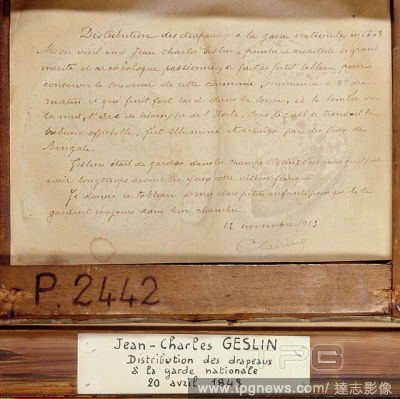 Distribution des drapeaux à la garde nationale en 1848
Mon vieil ami Jean Charles Geslin, peintre et architecte de grand
mérite et archéologue passionné, a fait ce petit tableau pour
conserver le souvenir de cette cérémonie, commencée à 8h du
matin et qui finit fort tard dans la soirée, où la tombée de
la nuit, l'Arc de triomphe de l'Etoile, sous lequel se trouvait la
tribune officielle, fut illuminé et éclairée par des feux de
Bengale.
Geslin était de garde dans les Champs Elysées c'est ainsi qu'il put
avoir longtemps devant les yeux cette vision féerique
Je donne ce tableau à mes chers petits enfants pour qu'ils le
gardent toujours dans leur chambre.
17 novembre 1913
P. 2442
Jean-Charles GESLIN
Distribution des drapeaux
à la garde nationale
20 avril 1848
IPG
www.ipgnews.com / 達志影像